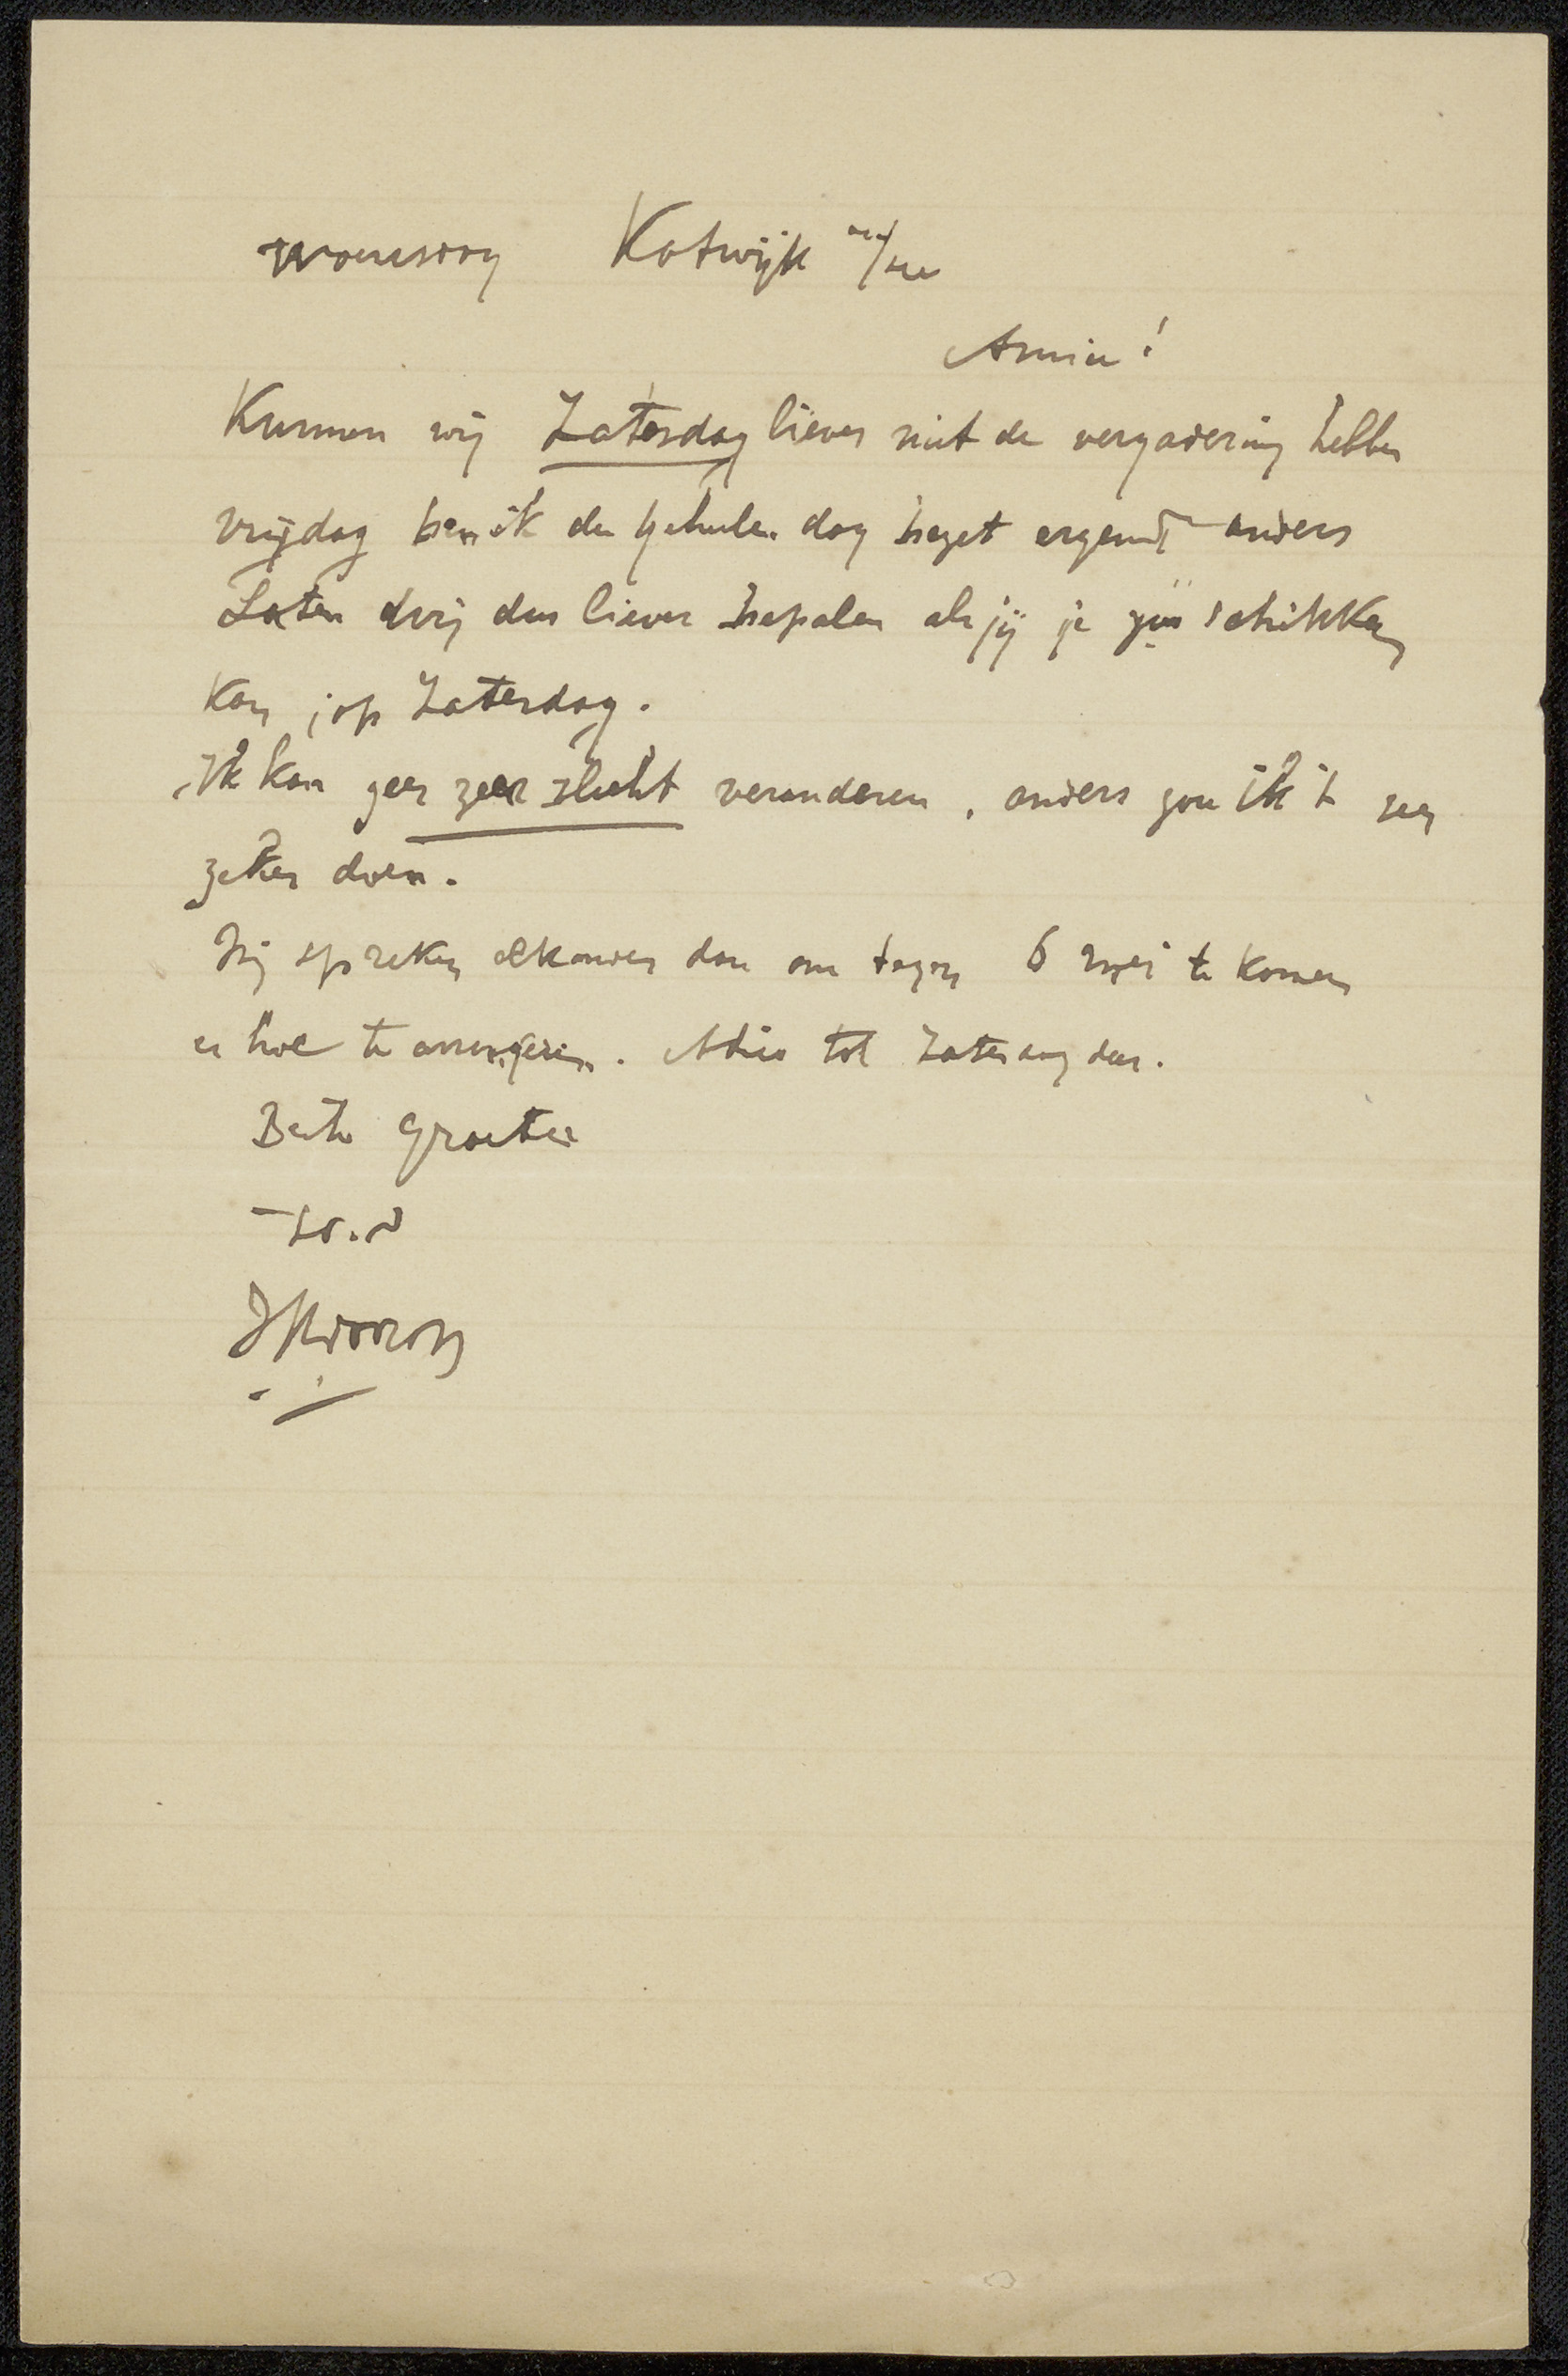 Woensdag Katwijk a/zee
Amice!
Kunnen wij Zaterdag liever niet de vergadering hebben
vrijdag ben ik den geheelen dag bezet ergens anders
Laten wij dus liever bepalen als jij je zou schikken
kan, op Zaterdag.
Ik kan zeer zeer slecht veranderen, anders zou ik 't zeer
zeker doen.
Wij spreken elkander dan om tegen 6 te komen
en hoe te arrangeren. Adieu tot Zaterdag dus.
Beste Groeten